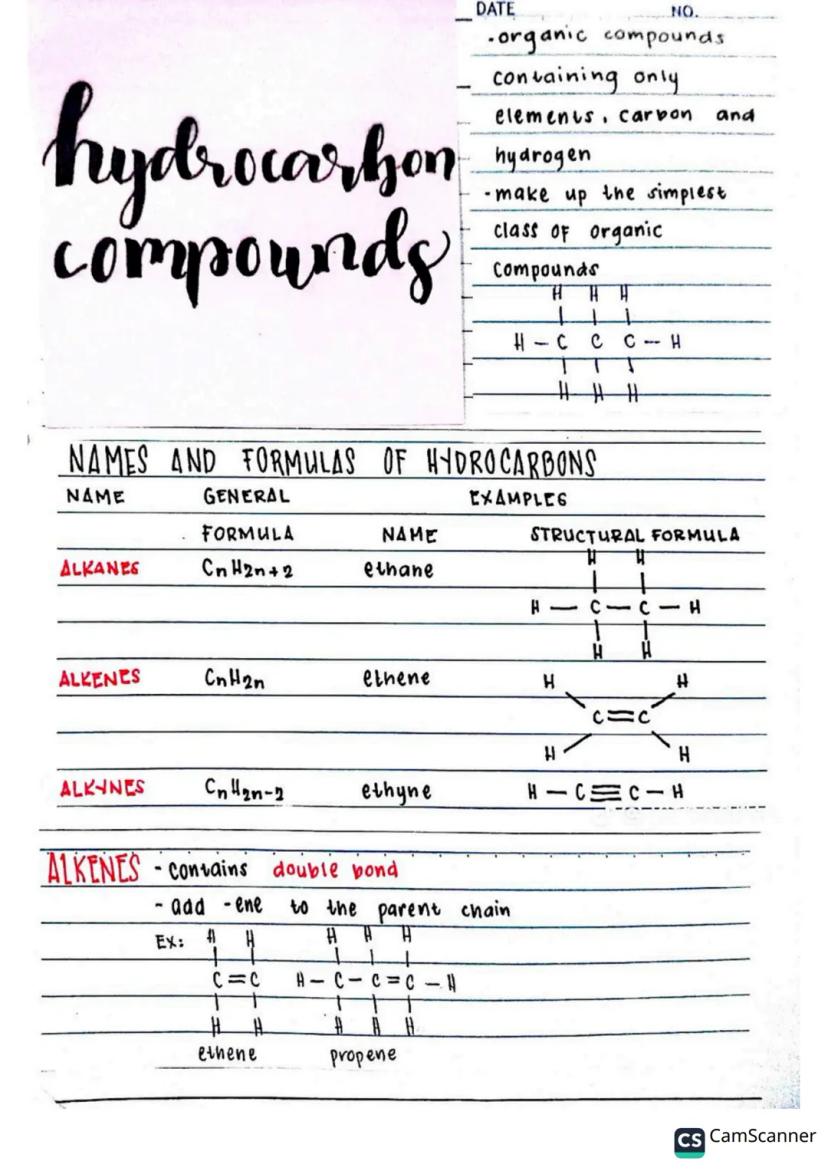 hydrocarbon
compounds
DATE NO.
-organic compounds
containing only
elements, carbon and
hydrogen
-make up the simplest
class of organic
compounds
H H H
| | |
H — C C C — H
| | |
H H H
NAMES AND FORMULAS OF HYDROCARBONS
NAME GENERAL EXAMPLES
FORMULA NAME STRUCTURAL FORMULA
H H
| |
ALKANES CnH2n+2 ethane
H — C — C — H
| |
H H
ALKENES CnH2n ethene H H
C=C
H H
ALKYNES CnH2n-2 ethyne H — C≡C — H
ALKENES - contains double bond
- add -ene to the parent chain
Ex: H H H H H
| | | | |
C=C H — C — C = C — H
| | | | |
H H H H H
ethene propene
CS CamScanner